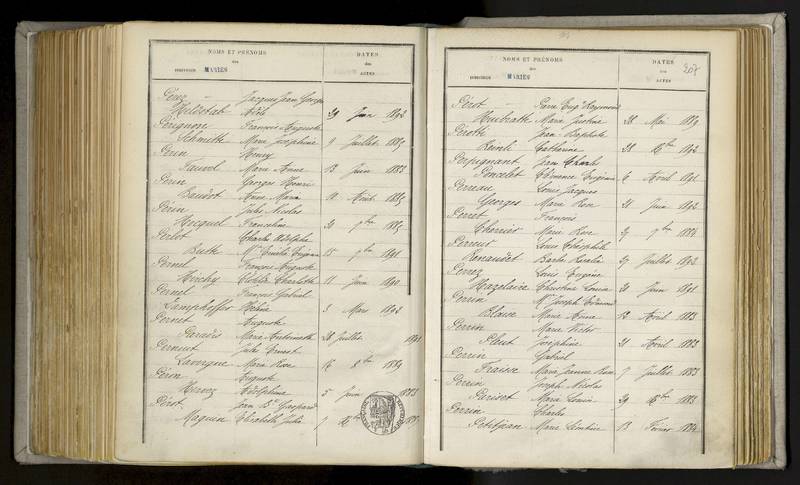 NOMS ET PRÉNOMS
des
INDIVIDUS MARIÉS
DATES
des
ACTES
Pérez Jacques Jean George
Heldstab Adèle 29 Juin 1892
Pérignon François Auguste
Schmitt Marie Joséphine 9 Juillet 1885
Perin Henry
Marie Anne 13 Juin 1883
Perin Georges Henri
Baudot Anne Marie 19 Août 1885
Périn Jules Nicolas
Hocquel 20 9bre 1885
Perlot Charles Adolphe
Buth 15 9bre 1891
Pernel François Auguste
Clotilde Charlotte 11 Juin 1890
Pernel François Gabriel
Lamphoffer Hélène 5 Mars 1892
Pernet Auguste
Paradis Marie Antoinette 28 Juillet 1891
Jules Ernest
Lavergne Marie Rose 16 8bre 1889
Péron Auguste
Hervez Adolphine 5 Juin 1883
Pérot Jean Bte Gaspard
Maguin Elisabeth Julie 7
NOMS ET PRÉNOMS
des
INDIVIDUS MARIÉS
DATES
des
ACTES
207
Pérot Pierre Eugne Raymond
Marie Justine 28 Mai 1889
Pérotti Jean Baptiste
Catherine 28 Xbre 1892
Perpugnant Jean Charles
Poncelet Clémence Eugénie 6 Avril 1891
Perreau Louis Jacques
Georges Marie Rose 21 Juin 1892
Perret François
Charrier Marie Rose 29 9bre 1884
Perreur Louis Théophile
Renaudet Barbe Rosalie 29 Juillet 1892
Perrez Louis Eugène
Hazelaire Christine Louise 20 Juin 1891
Perrin Mie Joseph Edmond
Blaise Marie Anne 12 Avril 1883
Perrin Marie Victor
Joséphine 21 Avril 1883
Perrin Gabriel
Fraisse Marie Jeanne Rose 7 Juillet 1883
Perrin Joseph Nicolas
Parisot Marie Louise 29 Xbre 1883
Perrin Charles
Petitjean Marie 13 Février 1884